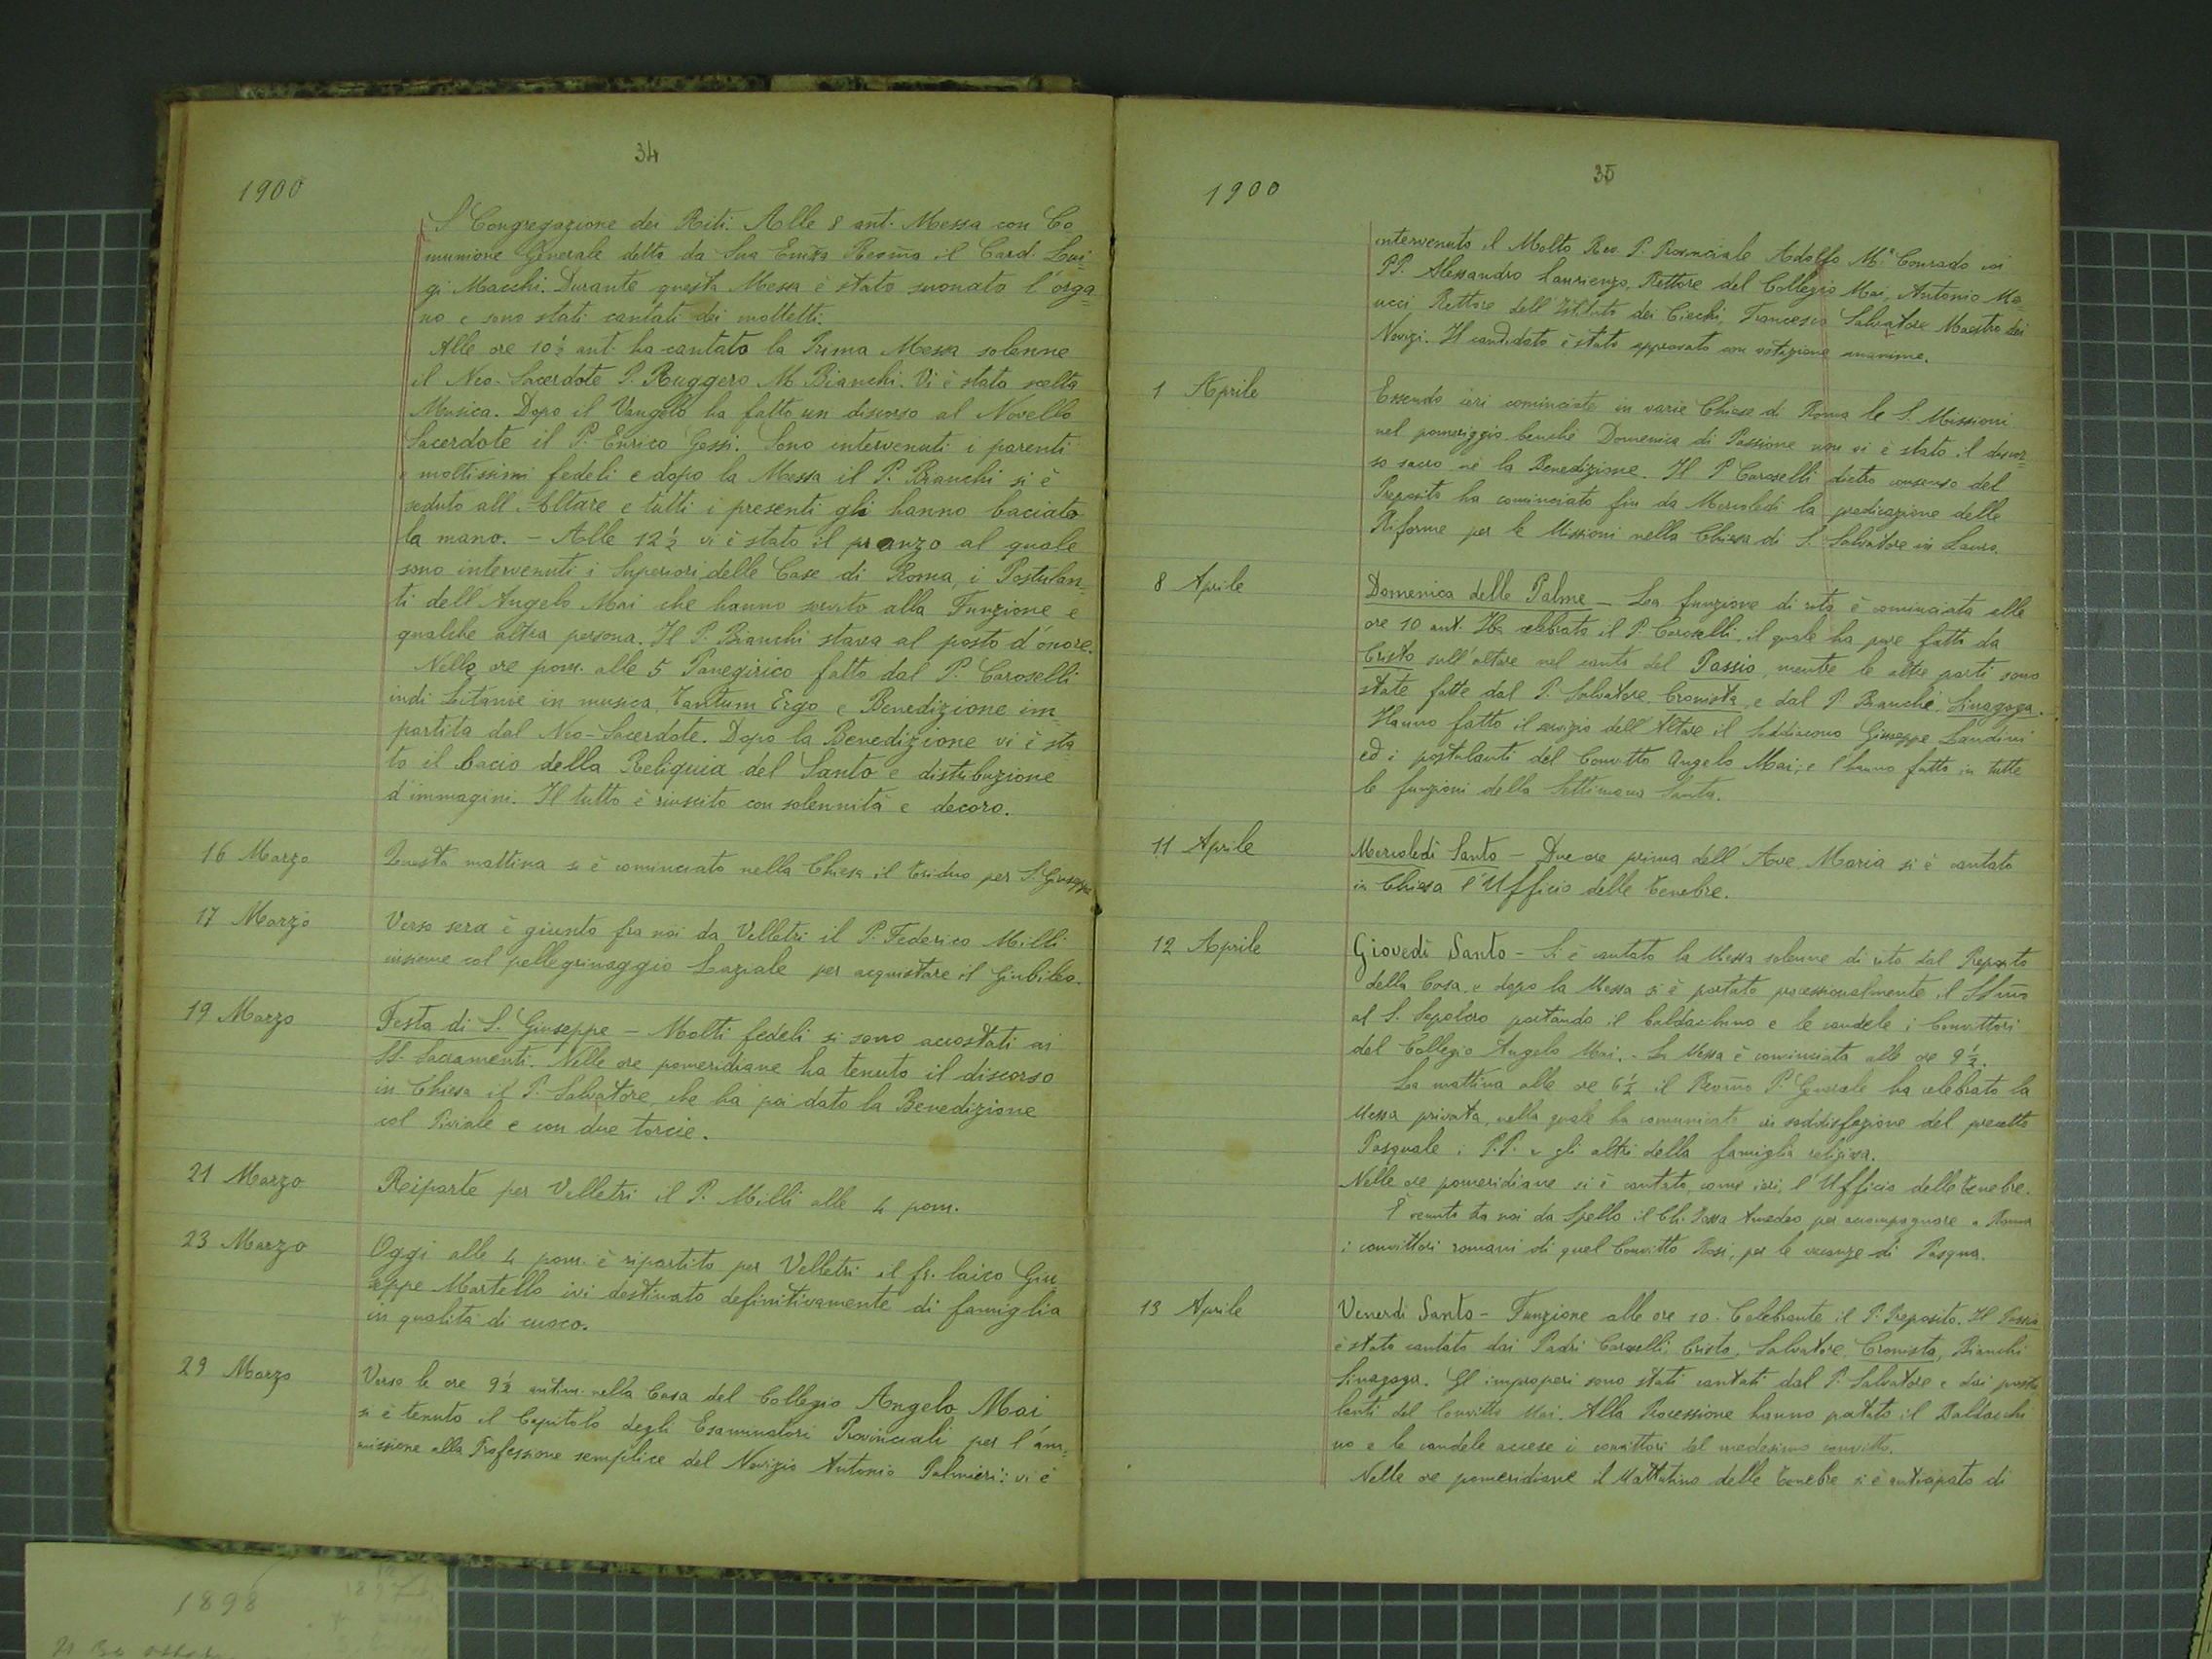 34
1900
S. Congregazione dei Riti. Alle 8 ant. Messa con Co-
munione Generale detta da Sua Emza Revma il Card. Lui-
gi Macchi. Durante questa Messa è stato suonato l'orga-
no e sono stati cantati dei mottetti.
Alle ore 10 ½ ant. ha cantato la Prima Messa solenne
il Neo-Sacerdote P. Ruggero M Bianchi. Vi è stata scelta
Musica. Dopo il Vangelo ha fatto un discorso al Novello
Sacerdote il P. Enrico Gessi. Sono intervenuti i parenti
e moltissimi fedeli e dopo la Messa il P. Bianchi si è
seduto all'Altare e tutti i presenti gli hanno baciato
la mano. - Alle 12 ½ vi è stato il pranzo al quale
sono intervenuti i Superiori delle Case di Roma, i Postulan-
ti dell'Angelo Mai che hanno servito alla Funzione e
qualche altra persona. Il P. Bianchi stava al posto d'onore.
Nelle ore pom. alle 5 Panegirico fatto dal P. Caroselli
indi Litanie in musica, Tantum Ergo e Benedizione im-
partita dal Neo-Sacerdote. Dopo la Benedizione vi è sta-
to il bacio della Reliquia del Santo e distribuzione
d'immagini. Il tutto è riuscito con solennità e decoro.
16 Marzo Questa mattina si è cominciato nella Chiesa il triduo per S. Giuseppe
17 Marzo Verso sera è giunto fra noi da Velletri il P. Federico Milli
insieme col pellegrinaggio Laziale per acquistare il Giubileo.
19 Marzo Festa di S. Giuseppe - Molti fedeli si sono accostati ai
SS. Sacramenti. Nelle ore pomeridiane ha tenuto il discorso
in Chiesa il P. Salvatore, che ha poi dato la Benedizione
col Piviale e con due torcie.
21 Marzo Riparte per Velletri il P. Milli alle 4 pom.
23 Marzo Oggi alle 4 pom. è ripartito per Velletri il fr. laico Giu-
seppe Martello ivi destinato definitivamente di famiglia
in qualità di cuoco.
29 Marzo Verso le ore 9 ½ antim. nella Casa del Collegio Angelo Mai
si è tenuto il Capitolo degli Esaminatori Provinciali per l'am-
missione alla Professione semplice del Novizio Antonio Palmieri: vi è
35
1900
intervenuto il Molto Rev. P. Provinciale Adolfo M.a Conrado coi
PP. Alessandro Laurienzo, Rettore del Collegio Mai, Antonio Ma-
ucci Rettore dell'Istituto dei Ciechi, Francesco Salvatore Maestro dei
Novizi. Il candidato è stato approvato con votazione unanime.
1 Aprile Essendo ieri cominciate in varie Chiese di Roma le S. Missioni
nel pomeriggio benchè Domenica di Passione non vi è stato il discor-
so sacro nè la Benedizione. Il P Caroselli dietro consenso del
Preposito ha cominciato fin da Mercoledì la predicazione delle
Riforme per le Missioni nella Chiesa di S. Salvatore in Lauro.
8 Aprile Domenica delle Palme - La funzione di rito è cominciata alle
ore 10 ant. Ha celebrato il P. Caroselli, il quale ha pure fatto da
Cristo sull'altare nel canto del Passio, mentre le altre parti sono
state fatte dal P. Salvatore, Cronista, e dal P. Bianchi Sinagoga.
Hanno fatto il servizio dell'Altare il Suddiacono Giuseppe Landini
ed i postulanti del Convitto Angelo Mai; e l'hanno fatto in tutte
le funzioni della Settimana Santa.
11 Aprile Mercoledì Santo - Due ore prima dell'Ave Maria si è cantato
in Chiesa l'Ufficio delle tenebre.
12 Aprile Giovedì Santo - Si è cantata la Messa solenne di rito dal Preposto
della Casa, e dopo la Messa si è portato processionalmente il SSmo
al S. Sepolcro portando il baldacchino e le candele i Convittori
del Collegio Angelo Mai. - La Messa è cominciata alle ore 9 ½.
La mattina alle ore 6 ½ il Revmo P. Generale ha celebrato la
Messa privata, nella quale ha comunicato in soddisfazione del precetto
Pasquale i P.P. e gli altri della famiglia religiosa.
Nelle ore pomeridiane si è cantato, come ieri, l'Ufficio delle tenebre.
È venuto da noi da Spello il Ch. Amedeo per accompagnare a Roma
i convittori romani di quel Convitto Rosi, per le vacanze di Pasqua.
13 Aprile Venerdì Santo - Funzione alle ore 10. Celebrante il P. Preposito. Il Passio
è stato cantato dai Padri Caroselli, Cristo, Salvatore, Cronista, Bianchi
Sinagoga. Gl'improperi sono stati cantati dal P. Salvatore e dai postu-
lanti del Convitto Mai. Alla Processione hanno portato il Baldacchi-
no e le candele accese i convittori del medesimo convitto.
Nelle ore pomeridiane il Mattutino delle tenebre si è anticipato di
1898